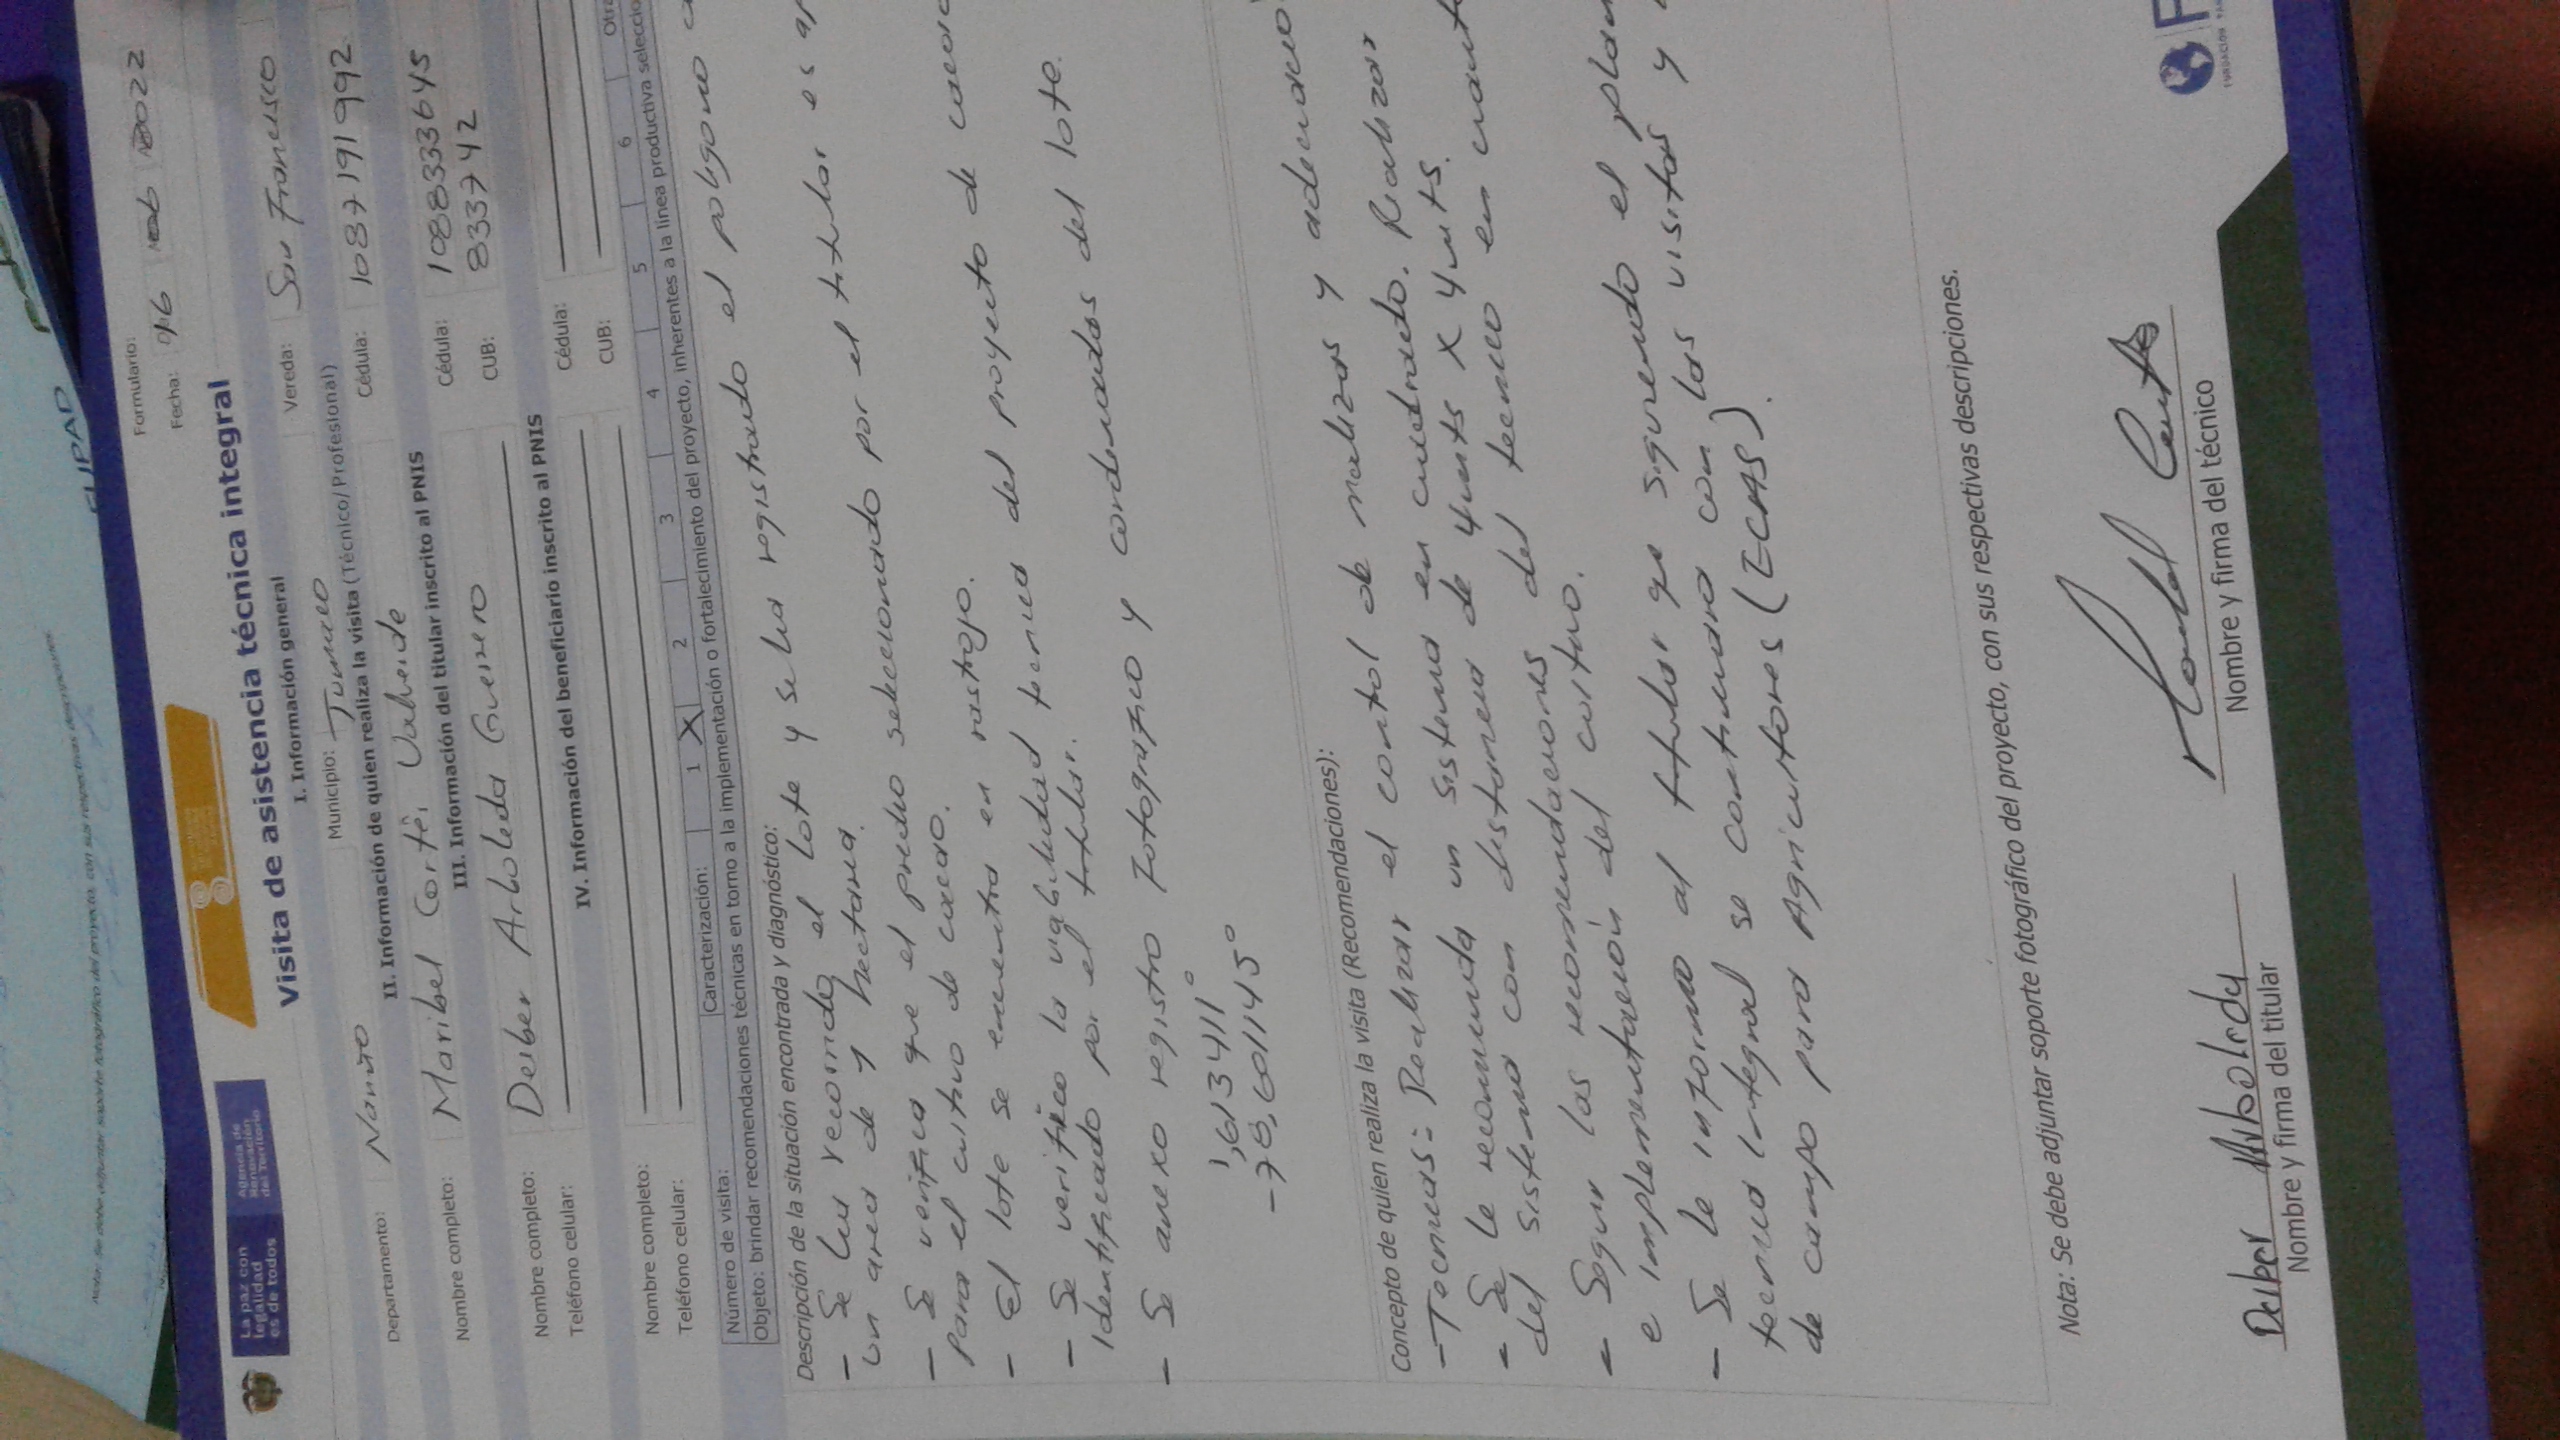 FUPAD
La paz con
legalidad
es de todos
Agencia de
Renovación
del Territorio
Formulario:
Fecha: 2022
Visita de asistencia técnica integral
I. Información general
Departamento: Nariño Municipio: Tumaco Vereda: San Francisco
II. Información de quien realiza la visita (Técnico/Profesional)
Nombre completo: Maribel Cortés Valverde Cédula: 1087191992
III. Información del titular inscrito al PNIS
Nombre completo: Deiber Arboleda Guerrero Cédula: 1088333645
Teléfono celular: CUB: 833742
IV. Información del beneficiario inscrito al PNIS
Nombre completo: Cédula:
Teléfono celular: CUB:
Número de visita: Caracterización: 1 X 2 3 4 5 6 Otra
Objeto: brindar recomendaciones técnicas en torno a la implementación o fortalecimiento del proyecto, inherentes a la línea productiva seleccio
Descripción de la situación encontrada y diagnóstico:
- Se ha recorrido el lote y se ha registrado el poligono
un area de 1 hectarea.
- Se verifica que el predio seleccionado por el titular es
para el cultivo de cacao.
- El lote se encuentra en rastrojo.
- Se verifico la viabilidad tecnica del proyecto de
identificado por el titular.
- Se anexo registro Fotografico y cordenadas del lote.
1,613411°
-78,6011145°
Concepto de quien realiza la visita (Recomendaciones):
- Tecnicas: Realizar el control de malezas y
- Se le recomienda un sistema en cuadrado. Realizar
del sistema con distancia de 4 mts X 4 mts.
- Seguir las recomendaciones del tecnico en
e implementación del cultivo.
- Se le informo al titular que siguiendo el
tecnica integral se continuara con las visitas y
de campo para Agricultores (ECAS).
Nota: Se debe adjuntar soporte fotográfico del proyecto, con sus respectivas descripciones.
Deiber Arboleda
Nombre y firma del titular
Nombre y firma del técnico